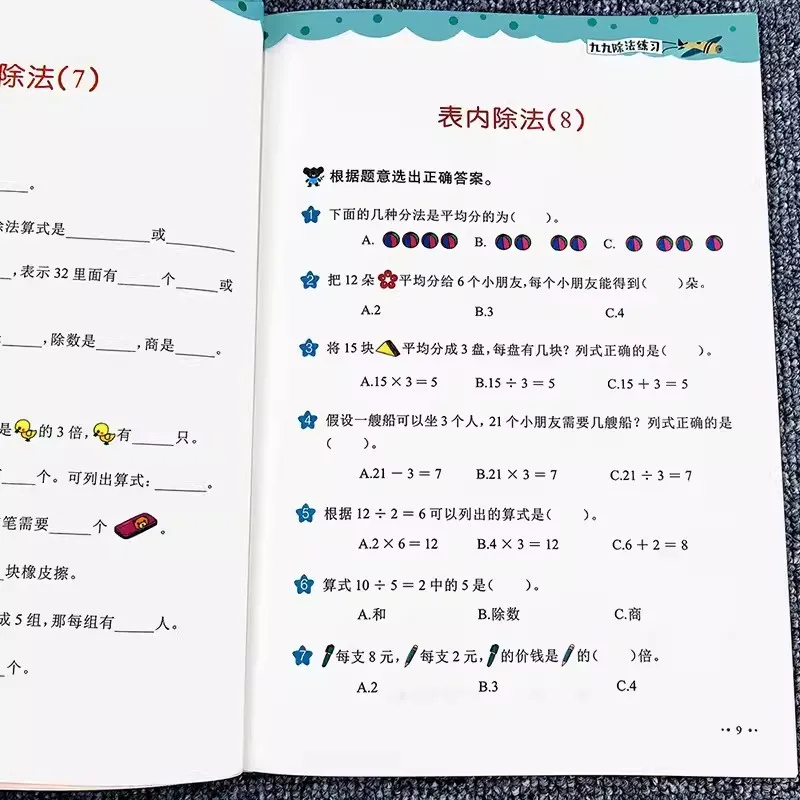 除法(7)
。
除法算式是______或______
______,表示 32 里面有______个______或
______,除数是______,商是______。
是 的 3 倍, 有______只。
______个。可列出算式:______。
笔需要______个 。
块橡皮擦。
成 5 组,那每组有______人。
个。
九九除法练习
表内除法(8)
根据题意选出正确答案。
1 下面的几种分法是平均分的为( )。
A. B. C.
2 把 12 朵 平均分给 6 个小朋友,每个小朋友能得到( )朵。
A.2 B.3 C.4
3 将 15 块 平均分成 3 盘,每盘有几块?列式正确的是( )。
A.15×3=5 B.15÷3=5 C.15+3=5
4 假设一艘船可以坐 3 个人,21 个小朋友需要几艘船?列式正确的是
( )。
A.21-3=7 B.21×3=7 C.21÷3=7
5 根据 12÷2=6 可以列出的算式是( )。
A.2×6=12 B.4×3=12 C.6+2=8
6 算式 10÷5=2 中的 5 是( )。
A.和 B.除数 C.商
7 每支 8 元, 每支 2 元, 的价钱是 的( )倍。
A.2 B.3 C.4
9